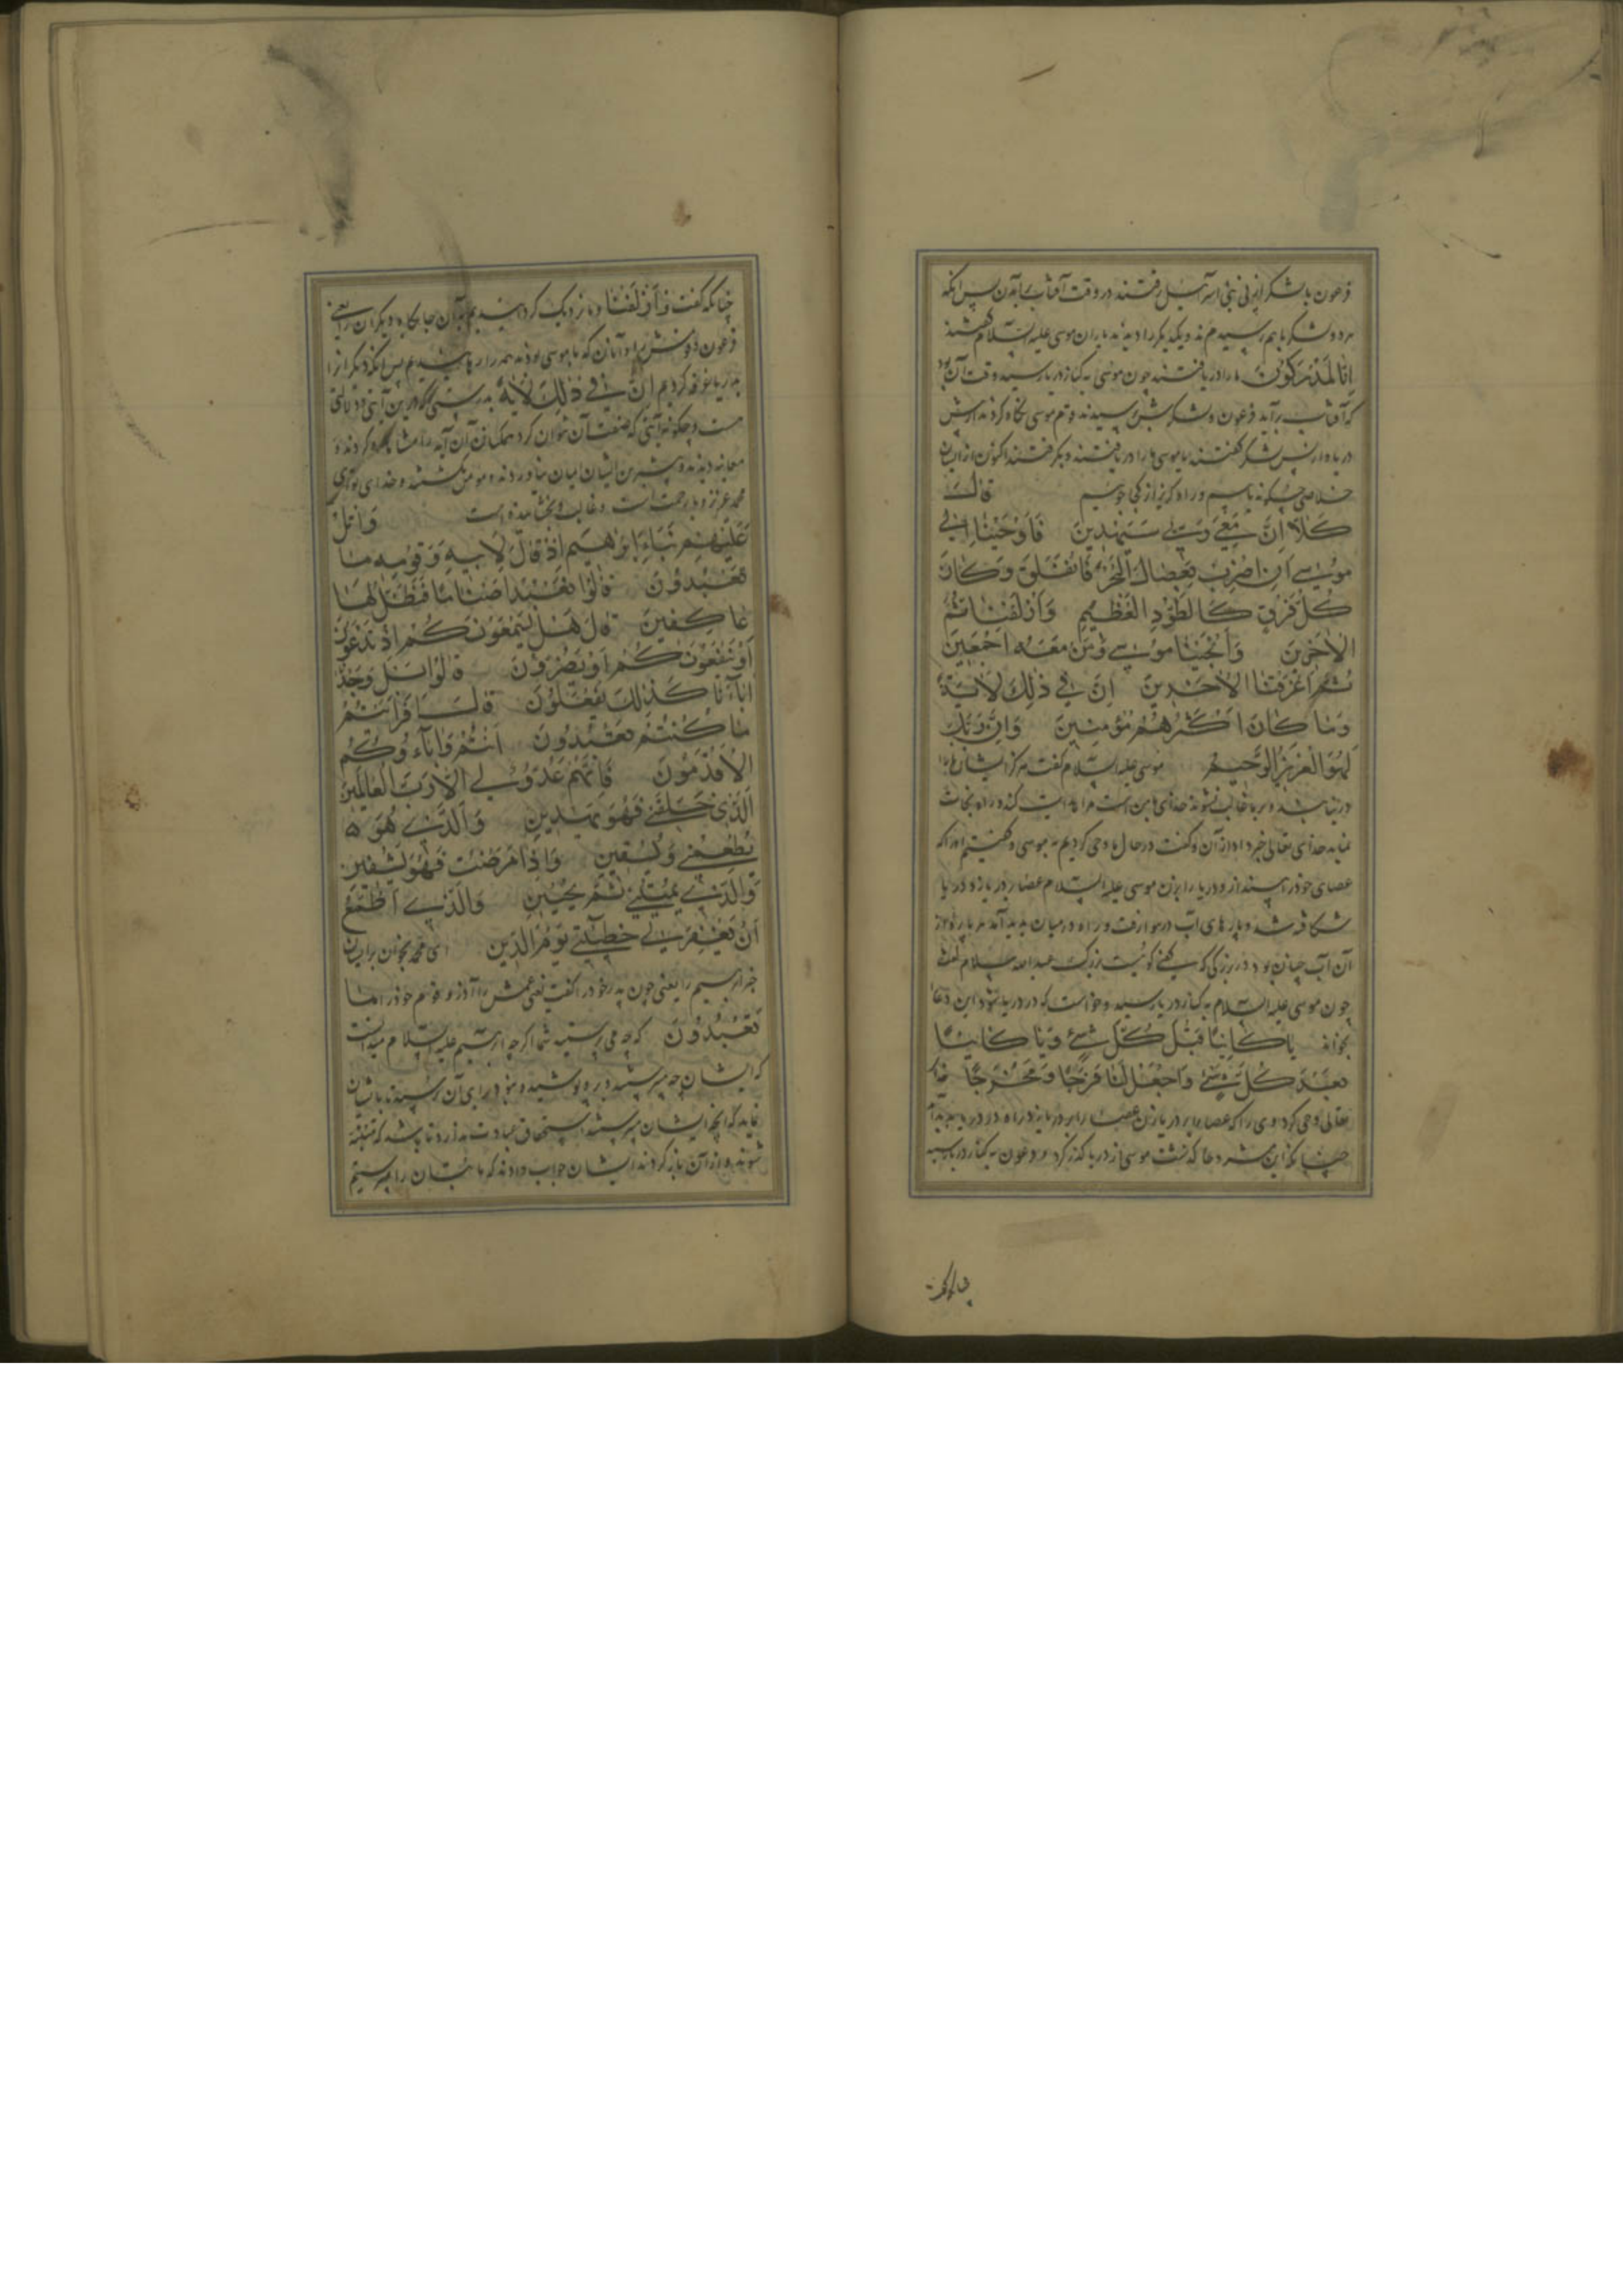 فرعون با لشکر از پی بنی اسرآئیل رفتند در وقت آفتاب برآمدن پس آنکه
هر دو لشکر باهم رسیدند و یکدیگر را دیدند یاران موسی علیه السّلام گفتند
اِنّا لَمُدْرَکُونَ ما را دریافتند چون موسی به کنار دریا رسید وقت آن بود
که آفتاب برآید فرعون و لشکرش برسیدند قوم موسی نگاه کردند از پیش
دریا و از پس لشکر گفتند یا موسی ما را دریافتند و بگرفتند اکنون از ایشان
خلاصی چگونه یابیم و راه گریز از کجا جوییم قالَ
کَلّا اِنَّ مَعِیَ رَبّی سَیَهْدِینِ فَاَوْحَیْنا اِلی
مُوسی اَنِ اضْرِبْ بِعَصاکَ الْبَحْرَ فَانْفَلَقَ وَکانَ
کُلُّ فِرْقٍ کَالطَّوْدِ الْعَظِیمِ وَاَزْلَفْنا ثَمَّ
الْآخَرِینَ وَاَنْجَیْنا مُوسی وَمَنْ مَعَهُ اَجْمَعِینَ
ثُمَّ اَغْرَقْنَا الْآخَرِینَ اِنَّ فِی ذلِکَ لَآیَةً
وَما کانَ اَکْثَرُهُمْ مُؤْمِنِینَ وَاِنَّ رَبَّکَ
لَهُوَ الْعَزِیزُ الرَّحِیمُ موسی علیه السّلام گفت هرگز ایشان ما را
درنیابند و بر ما غالب نشوند خدای با من است مرا هدایت کند و راه نجات
نماید خدای تعالی خبر داد از آن و گفت در حال ما وحی کردیم به موسی و گفتیم او را که
عصای خود را بینداز و دریا را بزن موسی علیه السّلام عصا بر دریا زد دریا
شکافته شد و پارهای آب در هوا رفت و راه در میان پدید آمد هر پاره از
آن آب چنان بود در بزرگی که گویی کوهیست بزرگ عبدالله سلام گفت
چون موسی علیه السّلام به کنار دریا رسید و خواست که در دریا شود این دعا
بخواند یا کائِنًا قَبْلَ کُلِّ شَیْءٍ وَیا کائِنًا
بَعْدَ کُلِّ شَیْءٍ وَاجْعَلْ لَنا فَرَجًا وَمَخْرَجًا خدای
تعالی وحی کرد وی را که عصا بر دریا زن عصا را بر دریا زد راه در دریا پدید آمد
چنانکه این شرح ما گذشت موسی از دریا گذر کرد و فرعون به کنار دریا رسید
چنانکه
چنانکه گفت وَاَزْلَفْنا و ما نزدیک گردانیدیم بدآن جایگاه دیگران را یعنی
فرعون و قومش را و آنان که با موسی بودند همه را رهانیدیم پس آنگه دیگران را
به دریا غرقه کردیم اِنَّ فِی ذلِکَ لَآیَةً بدرستی که در این آیتی و دلالتی
هست و چگونه آیتی که صفت آن نتوان کرد همگنان آن آیه را مشاهده کردند و
معاینه دیدند و بیشترین ایشان ایمان نیاوردند و مومن نگشتند و خدای تو ای
محمد عزیز و با رحمت است و غالب و بخشاینده است وَاتْلُ
عَلَیْهِمْ نَبَأَ اِبْراهِیمَ اِذْ قالَ لِاَبِیهِ وَقَوْمِهِ ما
تَعْبُدُونَ قالُوا نَعْبُدُ اَصْنامًا فَنَظَلُّ لَها
عاکِفِینَ قالَ هَلْ یَسْمَعُونَکُمْ اِذْ تَدْعُونَ
اَوْ یَنْفَعُونَکُمْ اَوْ یَضُرُّونَ قالُوا بَلْ وَجَدْنا
آباءَنا کَذلِکَ یَفْعَلُونَ قالَ اَفَرَاَیْتُمْ
ما کُنْتُمْ تَعْبُدُونَ اَنْتُمْ وَآباؤُکُمُ
الْاَقْدَمُونَ فَاِنَّهُمْ عَدُوٌّ لِی اِلّا رَبَّ الْعالَمِینَ
اَلَّذِی خَلَقَنِی فَهُوَ یَهْدِینِ وَالَّذِی هُوَ
یُطْعِمُنِی وَیَسْقِینِ وَاِذا مَرِضْتُ فَهُوَ یَشْفِینِ
وَالَّذِی یُمِیتُنِی ثُمَّ یُحْیِینِ وَالَّذِی اَطْمَعُ
اَنْ یَغْفِرَ لِی خَطِیئَتِی یَوْمَ الدِّینِ ای محمد بخوان بر ایشان
خبر ابرهیم را یعنی چون پدر خود را گفت یعنی عمش را آذر و قوم خود را ما
تَعْبُدُونَ که چه می‌پرستید شما اگرچه ابرهیم علیه السّلام میدانست
که ایشان چه میپرستید
نماید که آنچه ایشان میپرستند استحقاق عبادت ندارد تا باشد که متنبّه
شوند و از آن باز گردند ایشان جواب دادند که ما بتان را میپرستیم